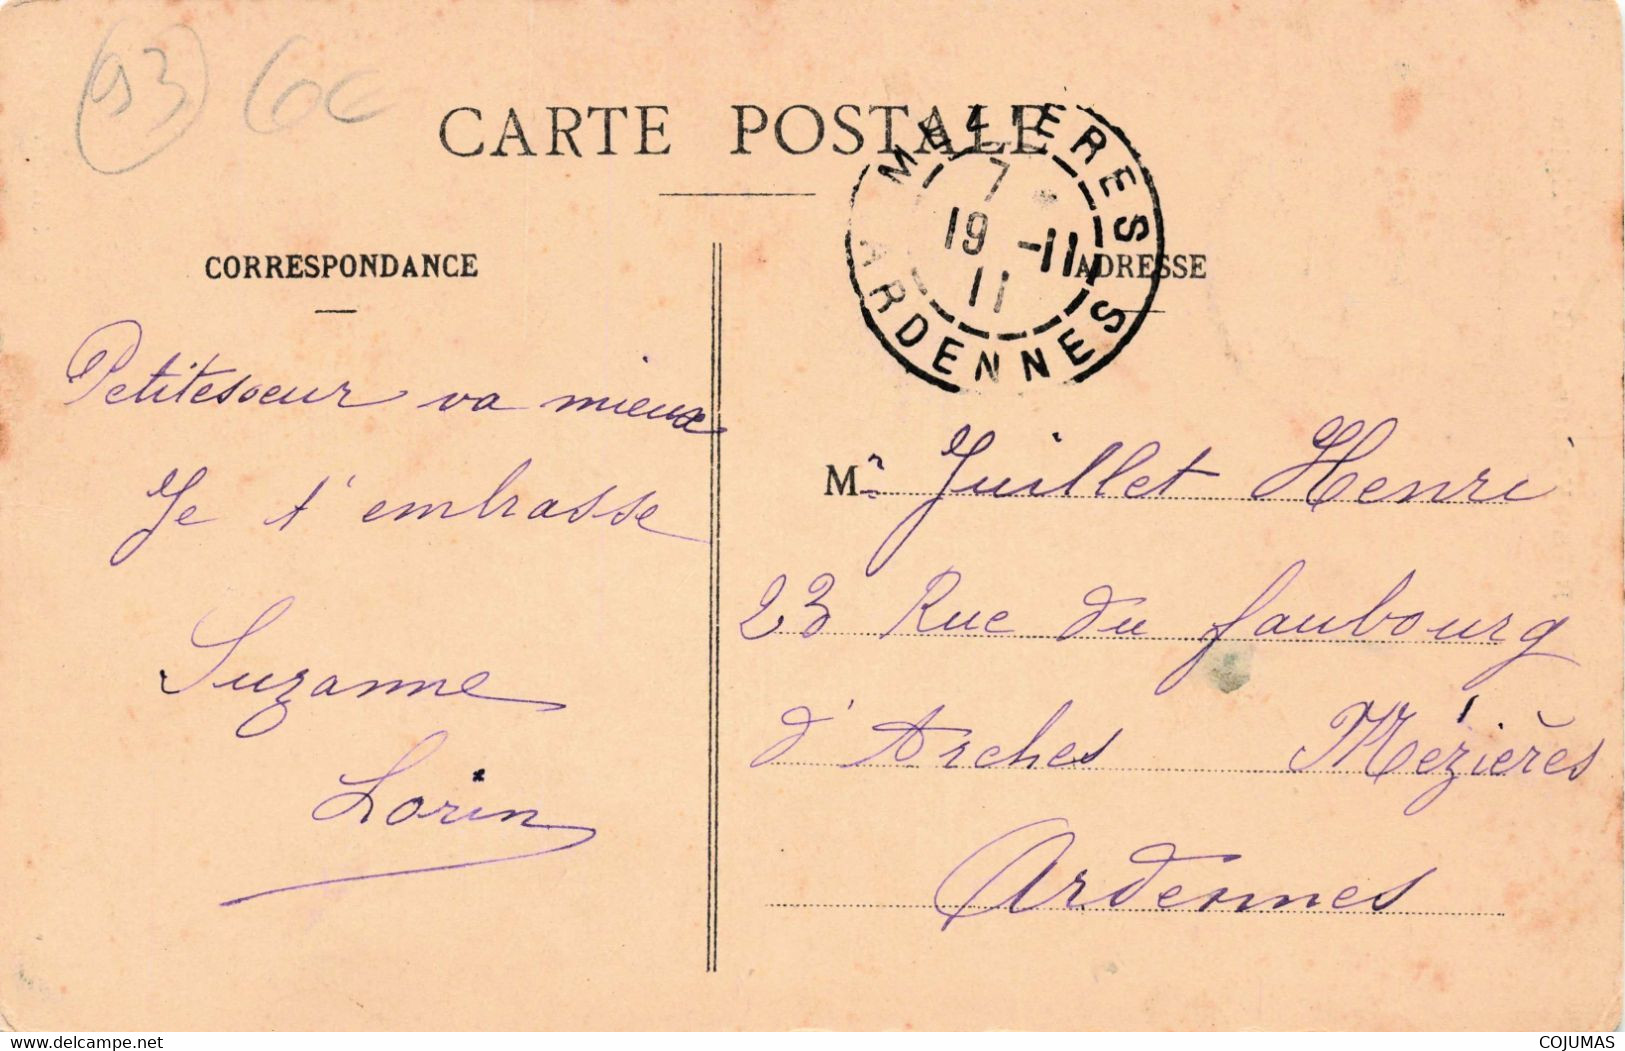 93 6€
CARTE POSTALE
MEZIERES
7
19 -11
11
ARDENNES
CORRESPONDANCE
ADRESSE
Petitesoeur va mieux
Je t'embrasse
Suzanne
Lorin
Mr Juillet Henri
23 Rue du faubourg
d'Arches Mézières
Ardennes
delcampe.net
COJUMAS